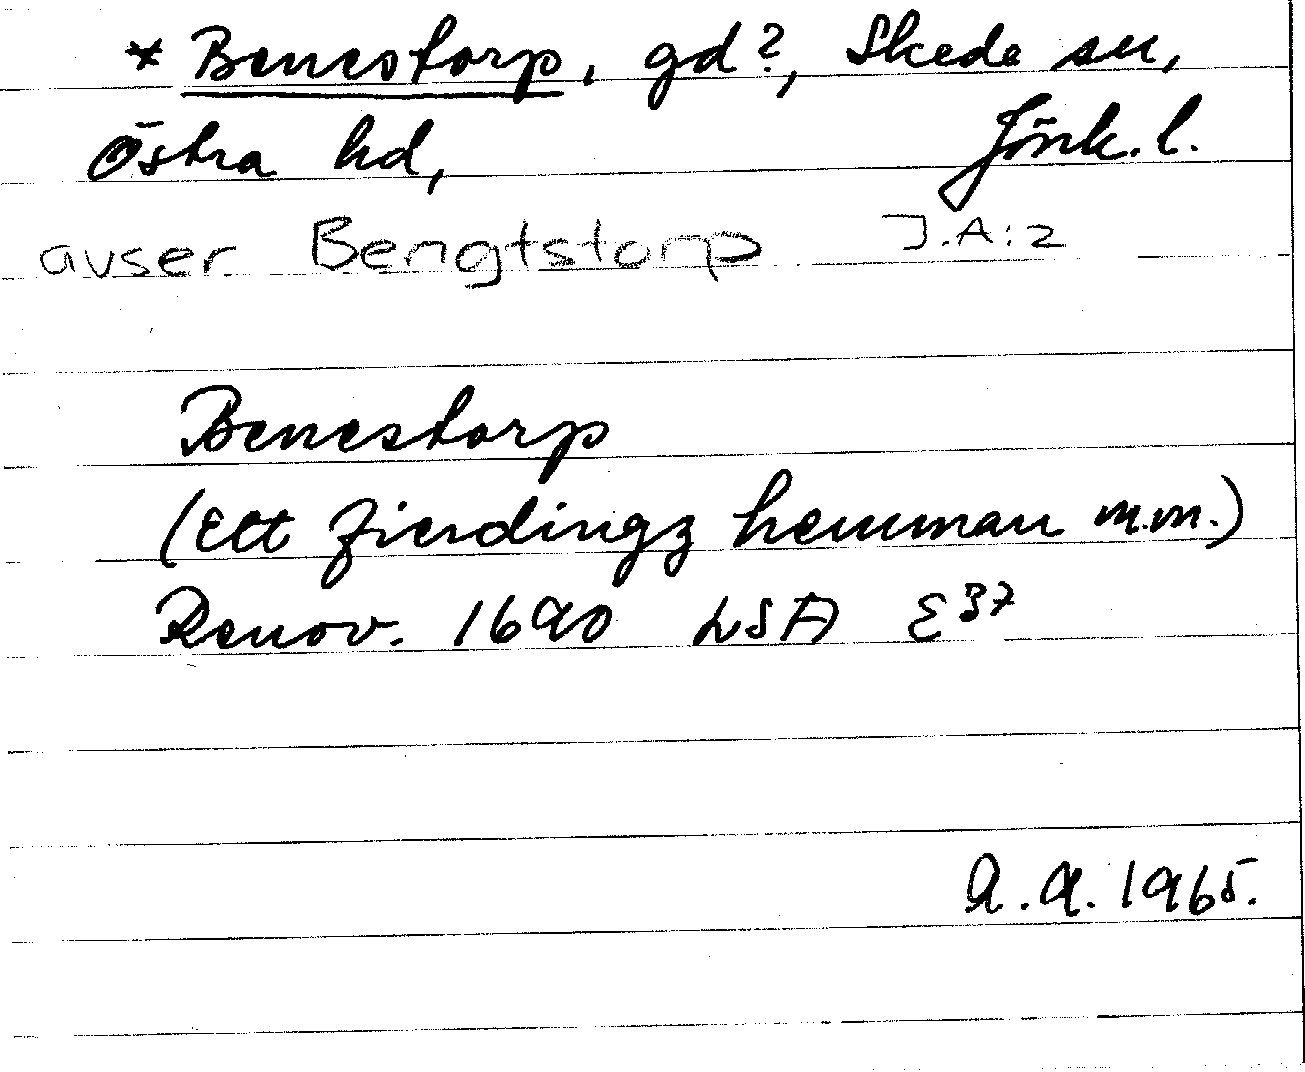 * Benestorp, gd?, Skede sn,
Östra hd, Jönk. l.
avser Bengtstorp J.A:2
Benestorp
(Ett fierdingz hemman m.m.)
Renov. 1690 LSA E37
A.A. 1965.